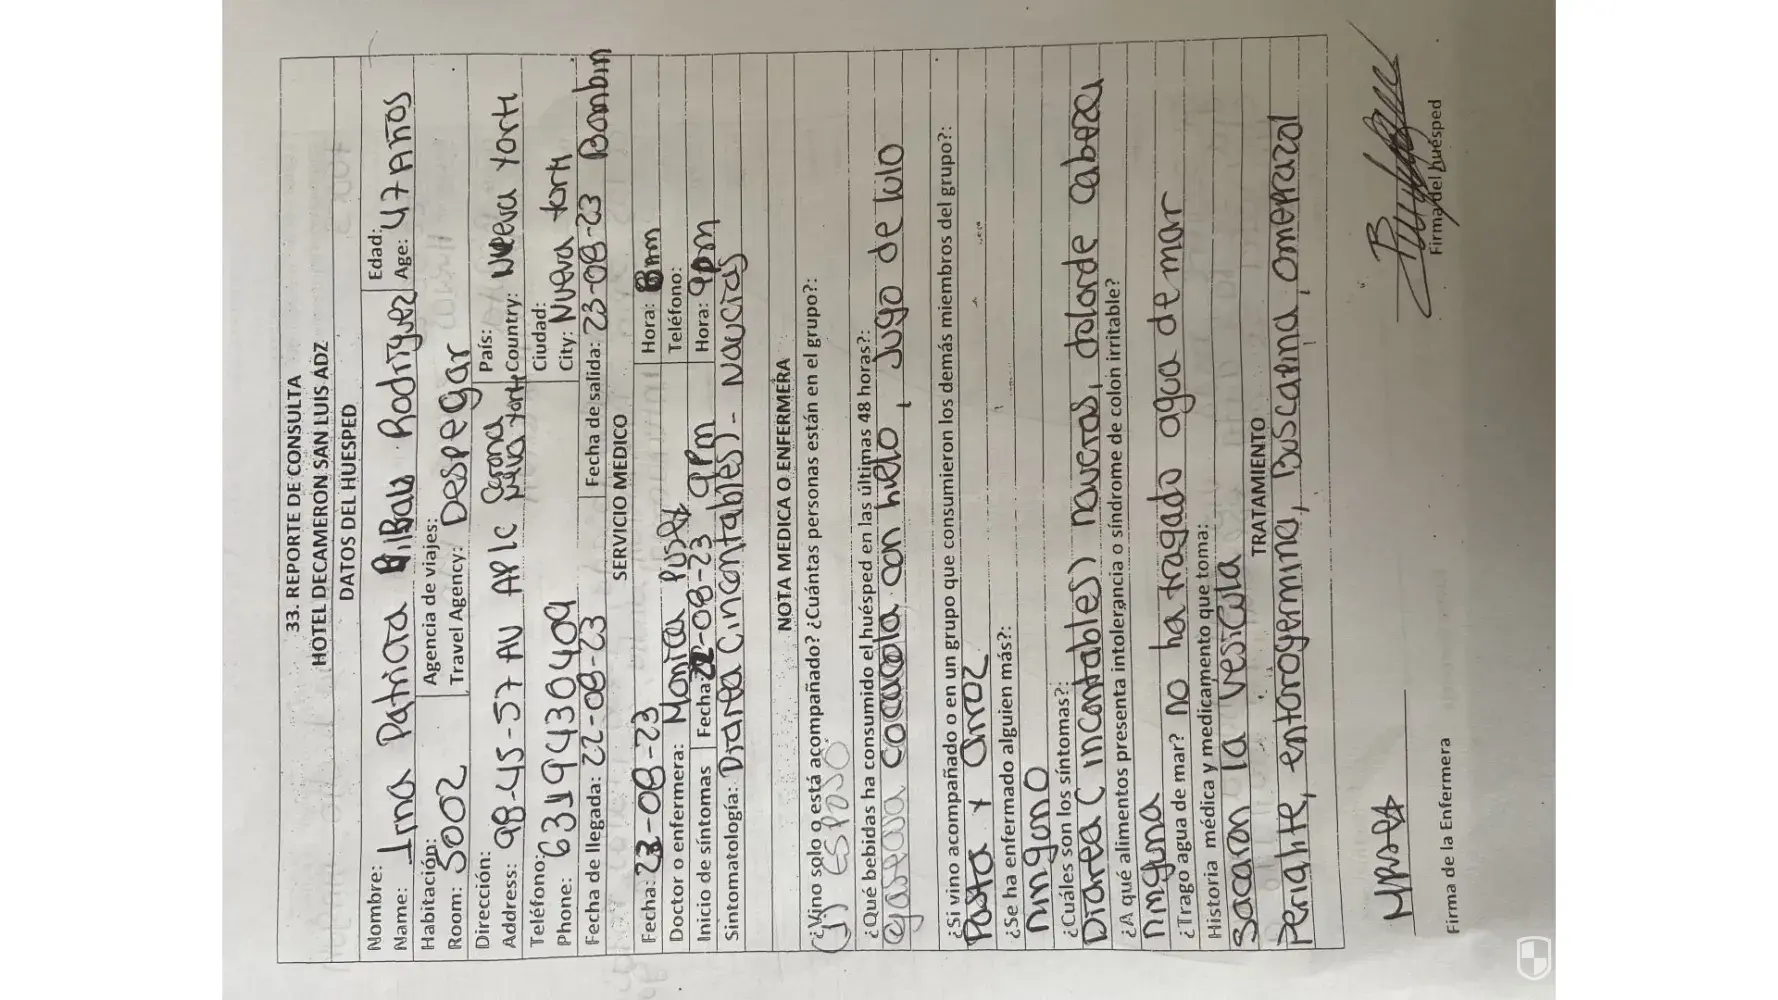 33. REPORTE DE CONSULTA
HOTEL DECAMERON SAN LUIS ADZ
DATOS DEL HUESPED
Nombre:
Name: Irma Patricia Rodriguez
Edad:
Age: 47 Años
Habitación:
Room: 5002
Agencia de viajes:
Travel Agency: Despegar
Dirección:
Address: 98-45-57 AV APLC
País:
Country: Nueva York
Teléfono:
Phone: 6319430409
Ciudad:
City: Nueva York
Fecha de llegada: 22-08-23
Fecha de salida: 23-08-23
SERVICIO MEDICO
Fecha: -08-23
Hora:
Doctor o enfermera: Monica
Teléfono:
Inicio de síntomas
Fecha: -08-23 9pm
Hora: 9pm
Sintomatología: Diarea (incontables) - Naucias
NOTA MEDICA O ENFERMERA
¿Vino solo o está acompañado? ¿Cuántas personas están en el grupo?:
(1) Esposo
¿Qué bebidas ha consumido el huésped en las últimas 48 horas?:
gaseosa cocacola con hielo, Jugo de lulo
¿Si vino acompañado o en un grupo que consumieron los demás miembros del grupo?:
Pasta y Arroz
¿Se ha enfermado alguien más?:
ninguno
¿Cuáles son los síntomas?:
Diarea (incontables) naucias, dolor de cabeza
¿A qué alimentos presenta intolerancia o síndrome de colon irritable?
ninguna
¿Trago agua de mar? no ha tragado agua de mar
Historia médica y medicamento que toma:
Sacaron la vesicula
TRATAMIENTO
Pedialite, enterogermina, Buscapina, omeprazol
Firma de la Enfermera
Firma del huésped